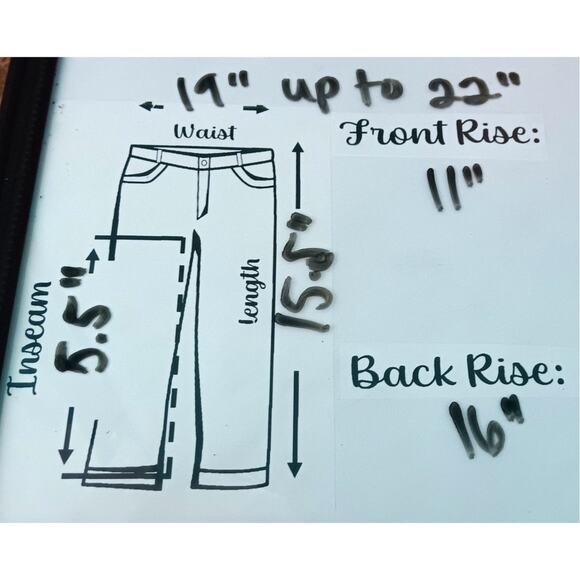 19" up to 22"
Waist
Front Rise:
11"
Inseam
5.5"
Length
15.5"
Back Rise:
16"